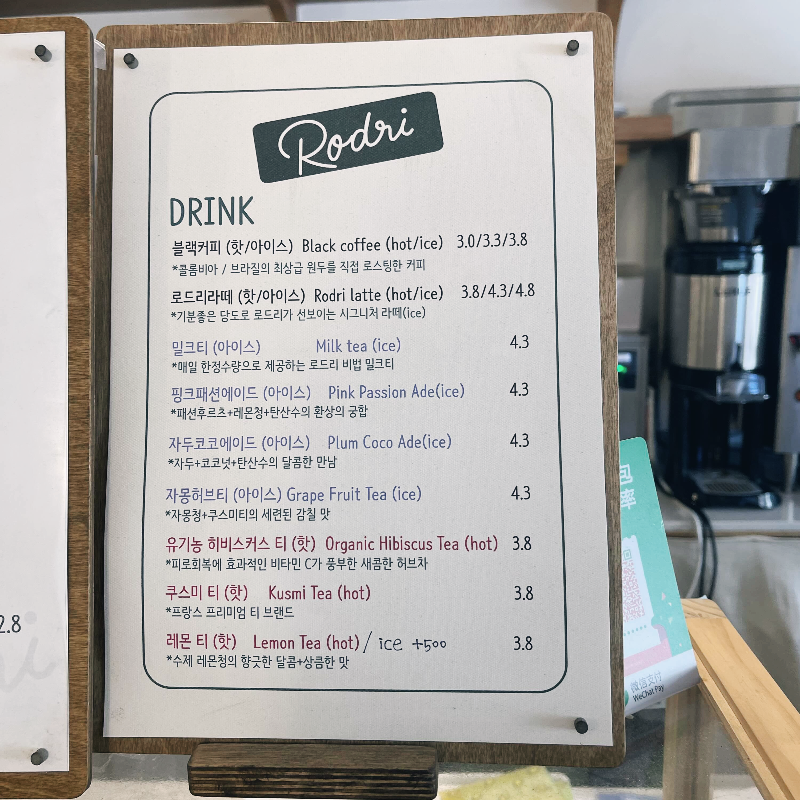 Rodri
DRINK
블랙커피 (핫/아이스) Black coffee (hot/ice) 3.0/3.3/3.8
*콜롬비아 / 브라질의 최상급 원두를 직접 로스팅한 커피
로드리라떼 (핫/아이스) Rodri latte (hot/ice) 3.8/4.3/4.8
*기분좋은 당도로 로드리가 선보이는 시그니처 라떼(ice)
밀크티 (아이스) Milk tea (ice) 4.3
*매일 한정수량으로 제공하는 로드리 비법 밀크티
핑크패션에이드 (아이스) Pink Passion Ade(ice) 4.3
*패션후르츠+레몬청+탄산수의 환상의 궁합
자두코코에이드 (아이스) Plum Coco Ade(ice) 4.3
*자두+코코넛+탄산수의 달콤한 만남
자몽허브티 (아이스) Grape Fruit Tea (ice) 4.3
*자몽청+쿠스미티의 세련된 감칠 맛
유기농 히비스커스 티 (핫) Organic Hibiscus Tea (hot) 3.8
*피로회복에 효과적인 비타민 C가 풍부한 새콤한 허브차
쿠스미 티 (핫) Kusmi Tea (hot) 3.8
*프랑스 프리미엄 티 브랜드
레몬 티 (핫) Lemon Tea (hot) / ice +500 3.8
*수제 레몬청의 향긋한 달콤+상큼한 맛
2.8
微信支付
WeChat Pay